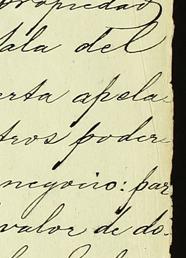 propiedad
Sala del
erta apela
tros poder
negocio: par
valor de do-